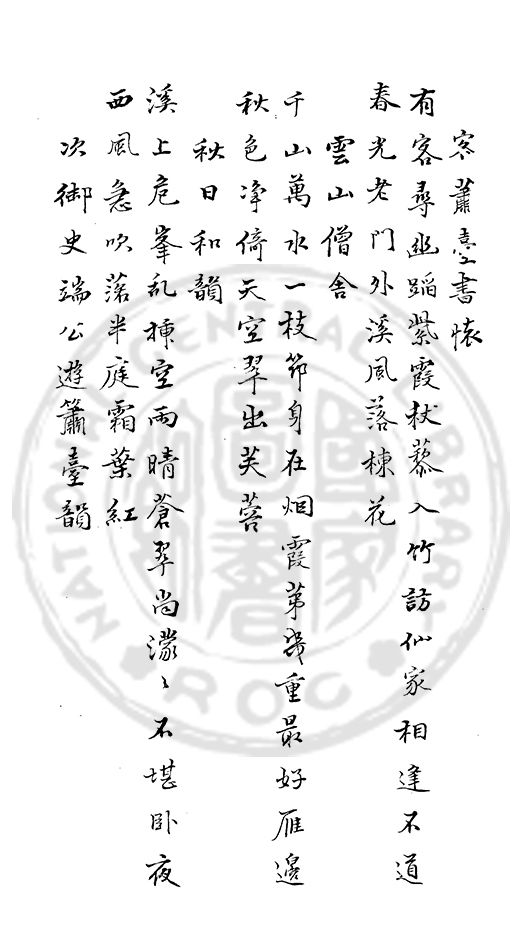 客蕭臺書懷
有客尋幽蹈紫霞杖藜入竹訪仙家相逢不道
春光老門外溪風落楝花
雲山僧舍
千山萬水一枝筇身在烟霞第幾重最好雁邊
秋色净倚天空翠出芙蓉
秋日和韻
溪上危峯亂插空雨晴蒼翠尚濛〻不堪卧夜
西風急吹落半庭霜葉紅
次御史端公遊簫臺韻
NATIONAL CENTRAL LIBRARY
R.O.C